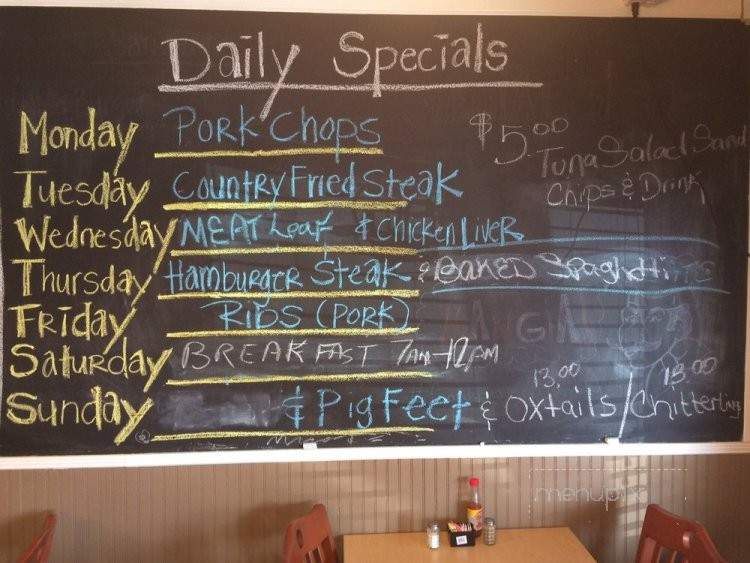 Daily Specials
Monday Pork Chops
$5.00 Tuna Salad Sand
Chips & Drink
Tuesday Country Fried Steak
Wednesday MEAT Loaf & Chicken LiveR
Thursday Hamburger Steak & BAKED Spaghetti
Friday RIBS (PORK)
Saturday BREAKFAST 7AM-12PM
13.00 13.00
Sunday & Pig Feet & Oxtails / Chitterlings
menupix